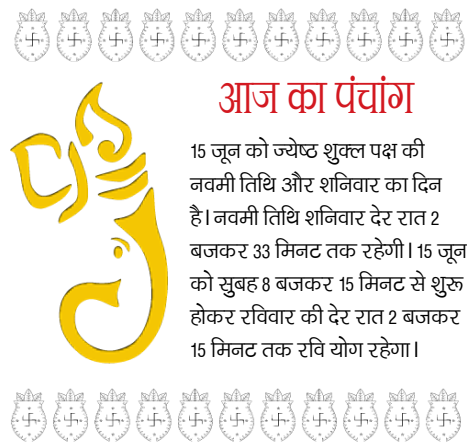 आज का पंचांग
15 जून को ज्येष्ठ शुक्ल पक्ष की
नवमी तिथि और शनिवार का दिन
है। नवमी तिथि शनिवार देर रात 2
बजकर 33 मिनट तक रहेगी। 15 जून
को सुबह 8 बजकर 15 मिनट से शुरू
होकर रविवार की देर रात 2 बजकर
15 मिनट तक रवि योग रहेगा।